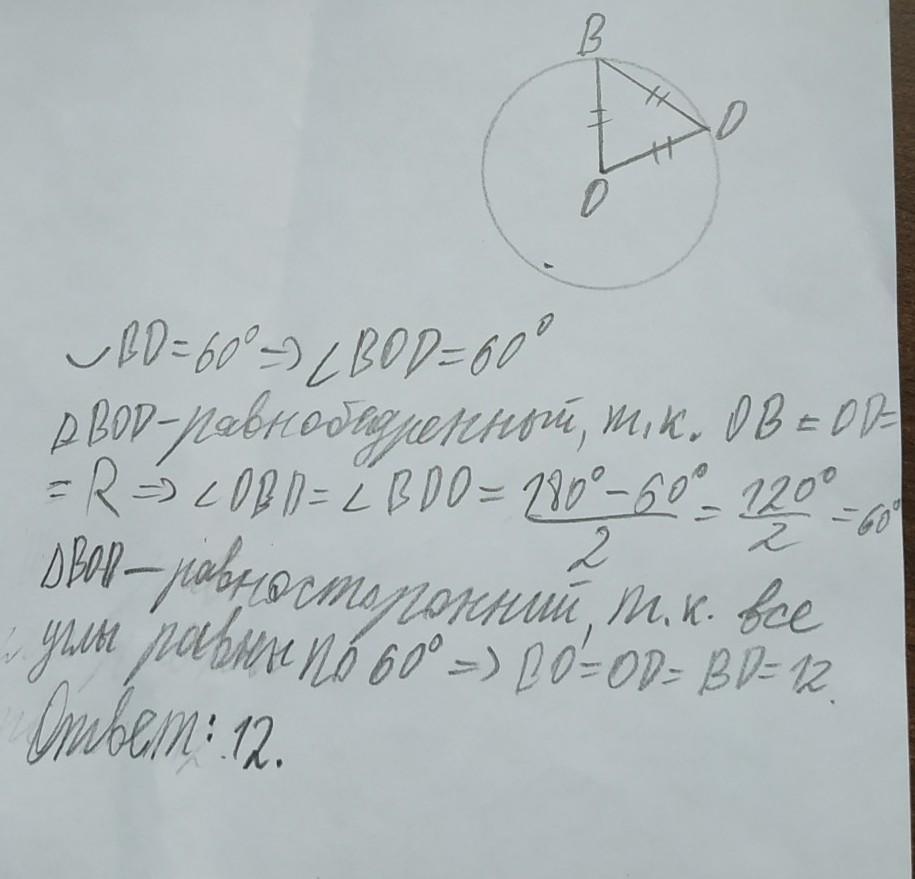 B
D
O
◡BD=60°=>∠BOD=60°
△BOD-равнобедренный, т.к. OB=OD=
=R=>∠OBD=∠BDO=(180°-60°)/2=120°/2=60°
△BOD-равносторонний, т.к. все
углы равны по 60°=>BO=OD=BD=12.
Ответ: 12.